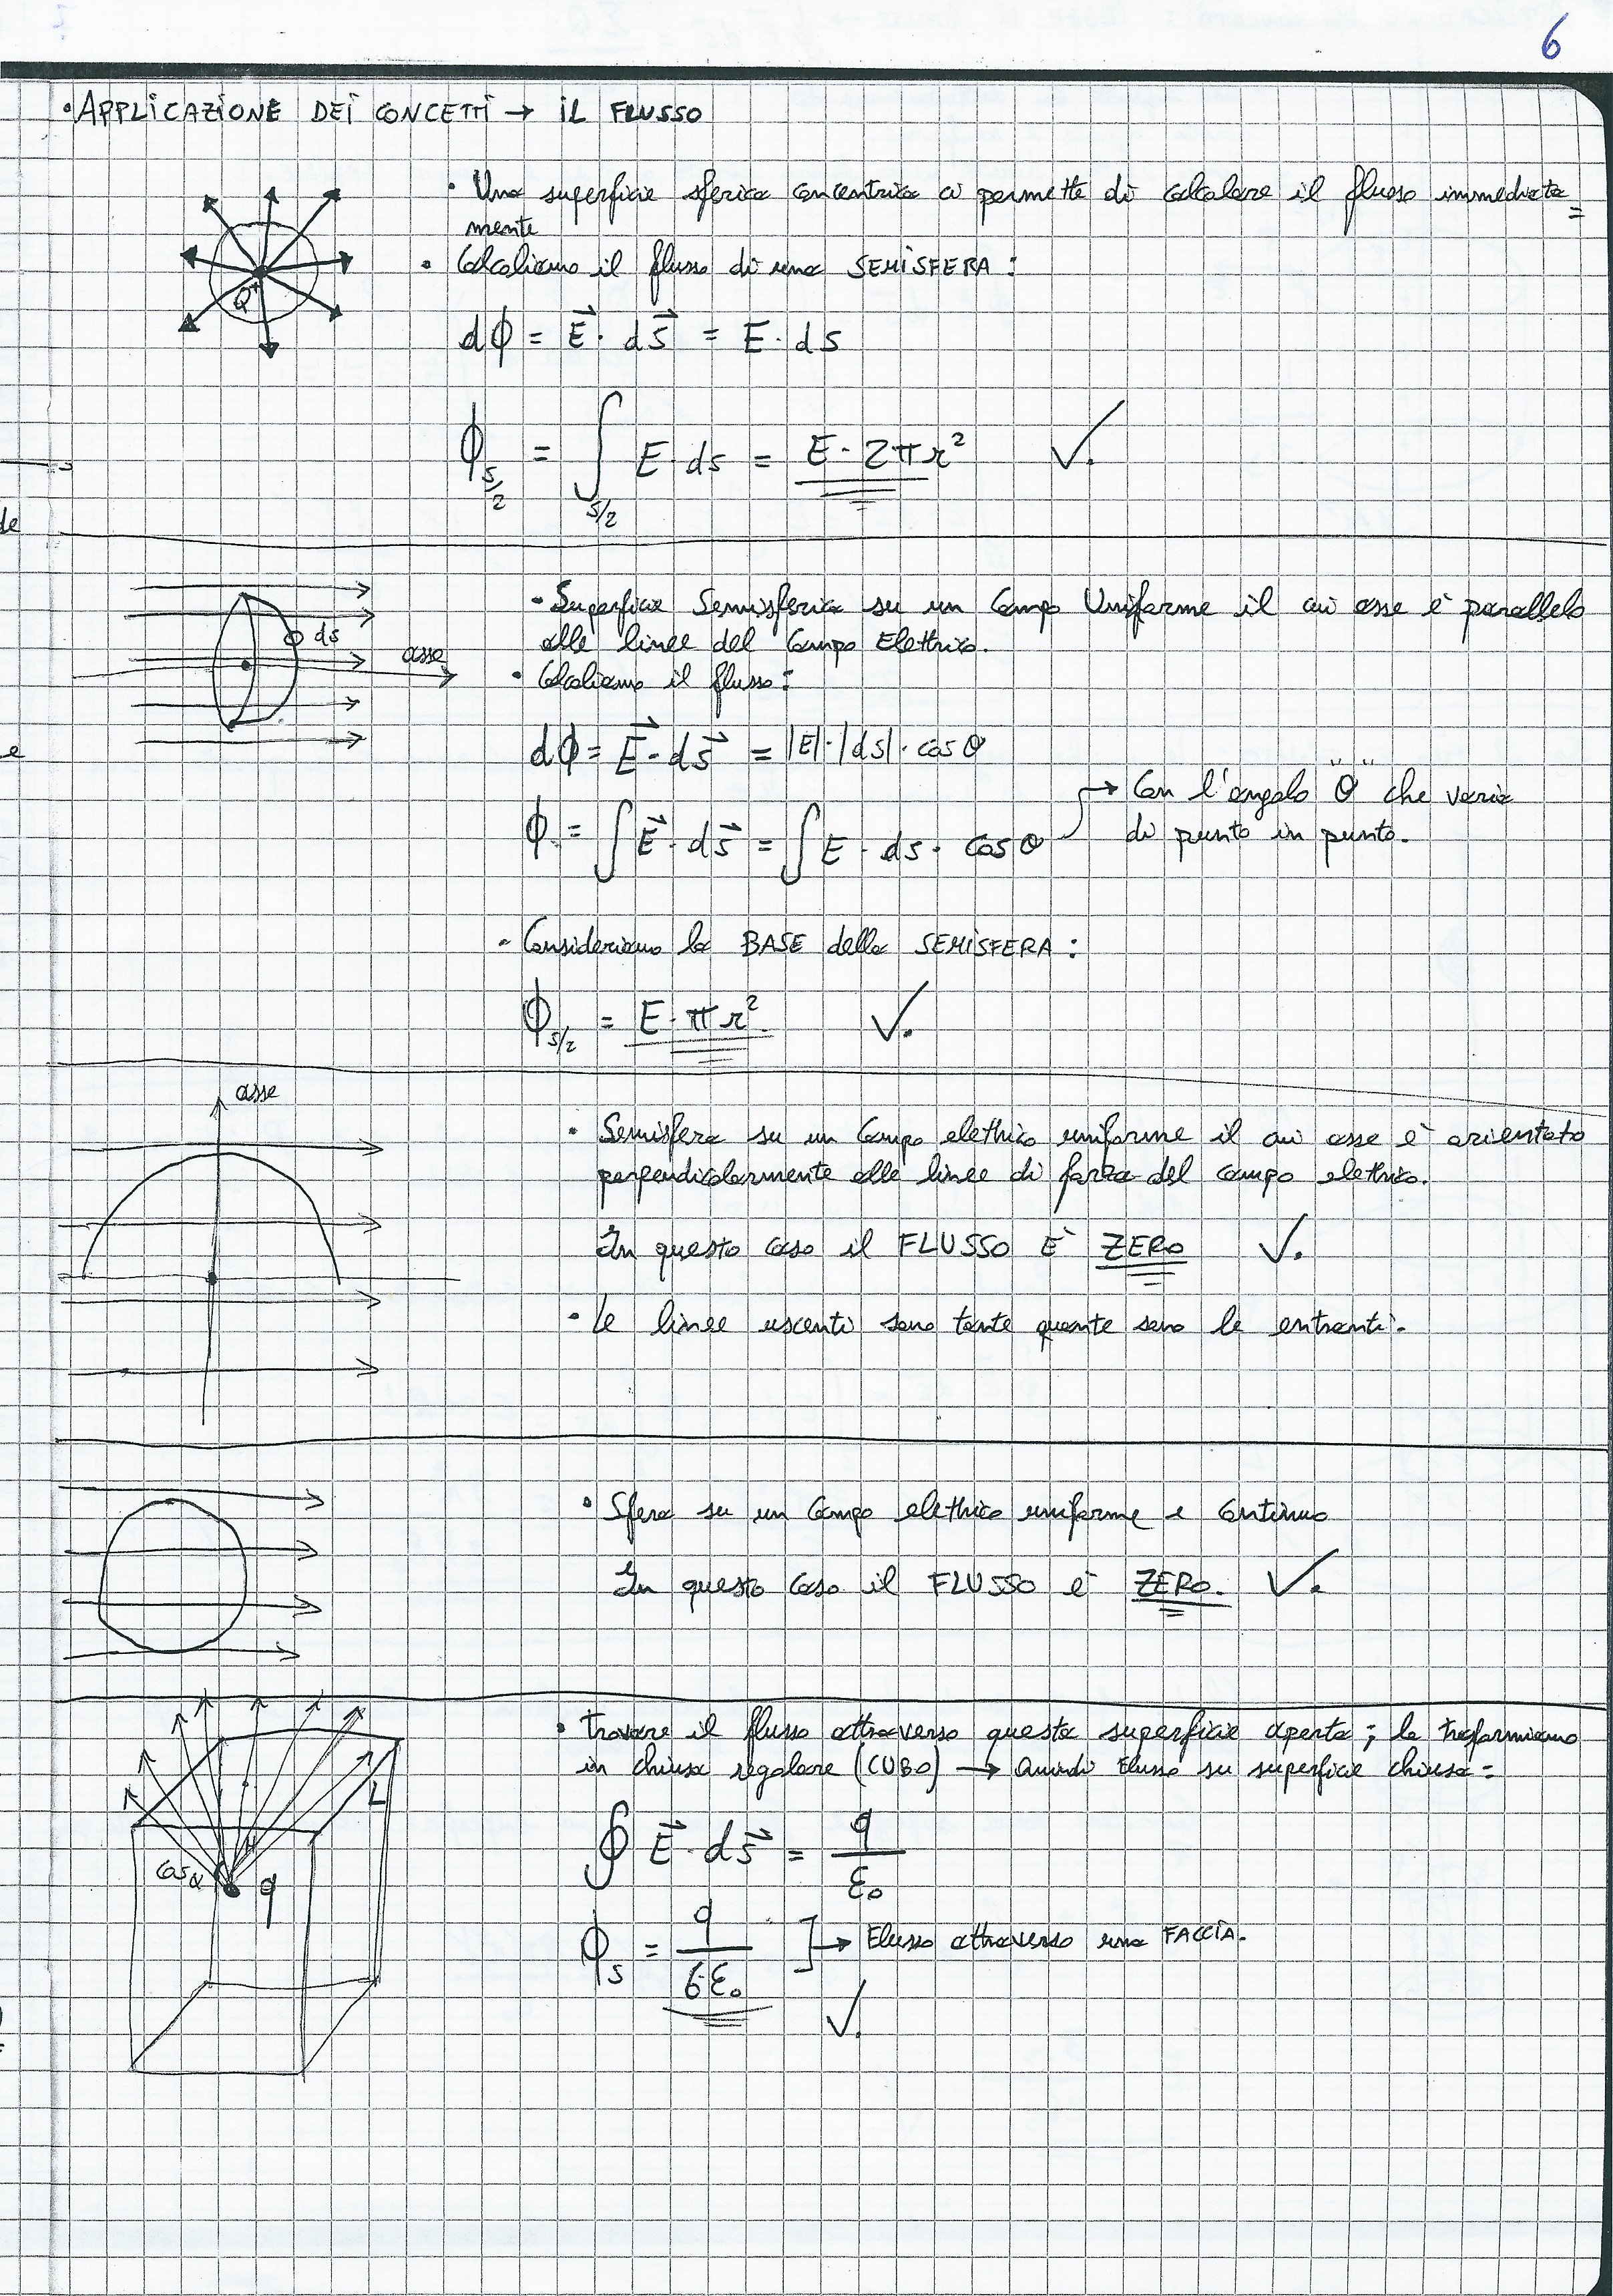 6
• APPLICAZIONE DEI CONCETTI → IL FLUSSO
• Una superficie sferica concentrica ci permette di calcolare il flusso immediata=
mente
• Calcoliamo il flusso di una SEMISFERA:
Q+
dϕ = E⃗ · ds⃗ = E · ds
ϕ_{S/2} = ∫_{S/2} E · ds = E · 2πr² ✓.
de
• Superficie Semisferica su un Campo Uniforme il cui asse è parallelo
alle linee del Campo Elettrico.
ds
asse
• Calcoliamo il flusso:
e
dϕ = E⃗ · ds⃗ = |E| · |ds| · cos θ
→ Con l'angolo "θ" che varia
di punto in punto.
ϕ = ∫ E⃗ · ds⃗ = ∫ E · ds · cos θ
• Consideriamo la BASE della SEMISFERA:
ϕ_{S/2} = E · πr² ✓.
asse
• Semisfera su un Campo elettrico uniforme il cui asse è orientato
perpendicolarmente alle linee di forza del campo elettrico.
In questo caso il FLUSSO È ZERO ✓.
• Le linee uscenti sono tante quante sono le entranti.
• Sfera su un Campo elettrico uniforme e continuo
In questo caso il FLUSSO è ZERO. ✓.
• Trovare il flusso attraverso questa superficie aperta; la trasformiamo
in chiusa regolare (CUBO) → Quindi Flusso su superficie chiusa =
L
cos α
q
∮ E⃗ · ds⃗ = q/ε₀
ϕ_S = q/6ε₀ ] → Flusso attraverso una FACCIA.
✓.